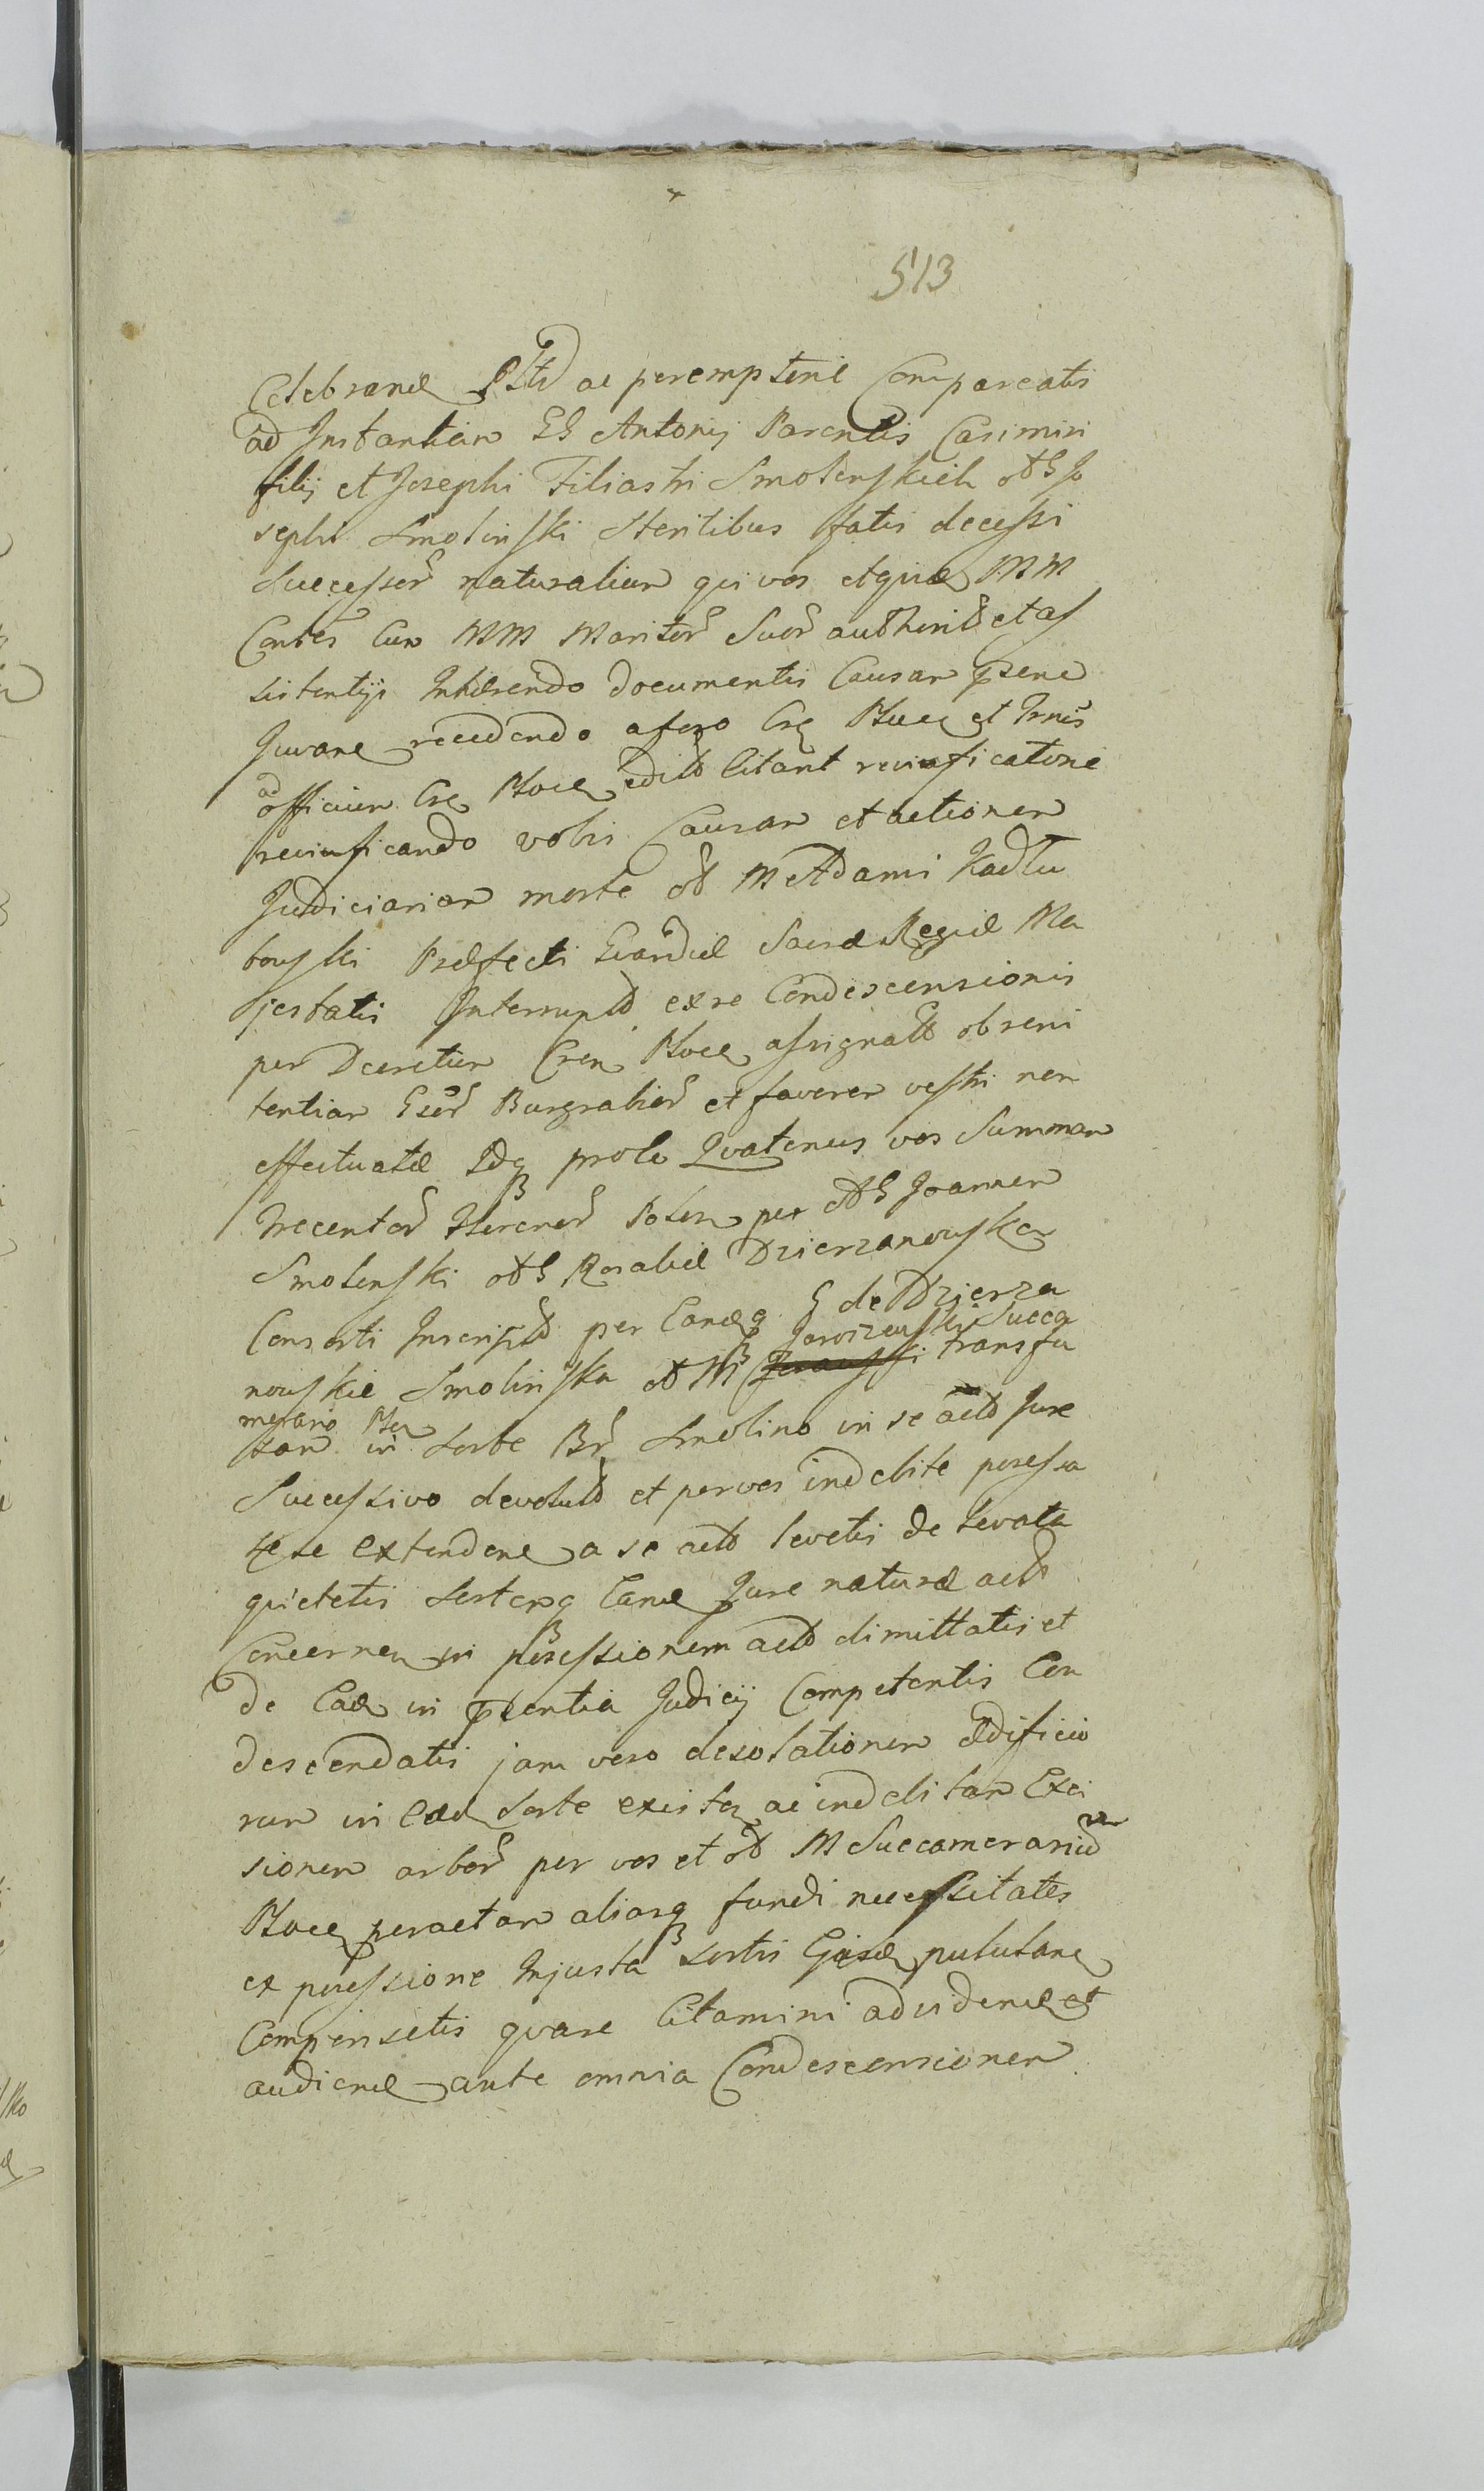 513
Celebrand ac peremptorie Compareatis
ad Instantiam GG Antonij Parentis Casimiri
filij et Josephi Filiastri Smolenskich olim G Jo
sephi Smolinski sterilibus fatis decessi
Successor naturalium qui vos atque MM
Contes cum MM Maritor Suor authorit et as
sistentijs Inhærendo documentis Causam
Juvan recedendo a foro Crs Ploc et
ad
officium Crs Ploc Citant revivificatorie
revivificando vobis Causam et actionem
Judiciariam morte ol M Adami Kadłu
bowski Præfecti Guardiæ Sacræ Regiæ Ma
jestatis Interrupt ex re Condescensionis
per Decretum Cren Ploce assignat ob reni
tentiam Gser Burgrabior et favorem vestri non
effectuatæ Idq prole Quatenus vos Summam
trecentor florenor Polon per olim G Joannem
Smolenski olim G Rosaliæ Dzierzanowska
Consorti Inscript per Eandq G de Dzierza
Jaroszewski Succa
nowskie Smolinska ol M transfu
merario Ploc
sam in Sorte Br Smolino in se act Jure
Successivo devolut et per vos indebite possessa
sese extenden a se act levetis de levata
quietetis sortemq Eand Jure naturæ act
Concernen in possessionem act dimittatis et
de Ead in præsentia Judicij Competentis Con
descendatis jam vero desolationem ædificio
rum in Ead Sorte existen ac indebitam Exci
sionem arbor per vos et ol M Succamerarium
Ploce peractam aliasq fundi necessitates
ex possessione Injusta sortis Ejusd pullulan
Compensetis quare Citamini ad vidend et
audiend ante omnia Condescensionem